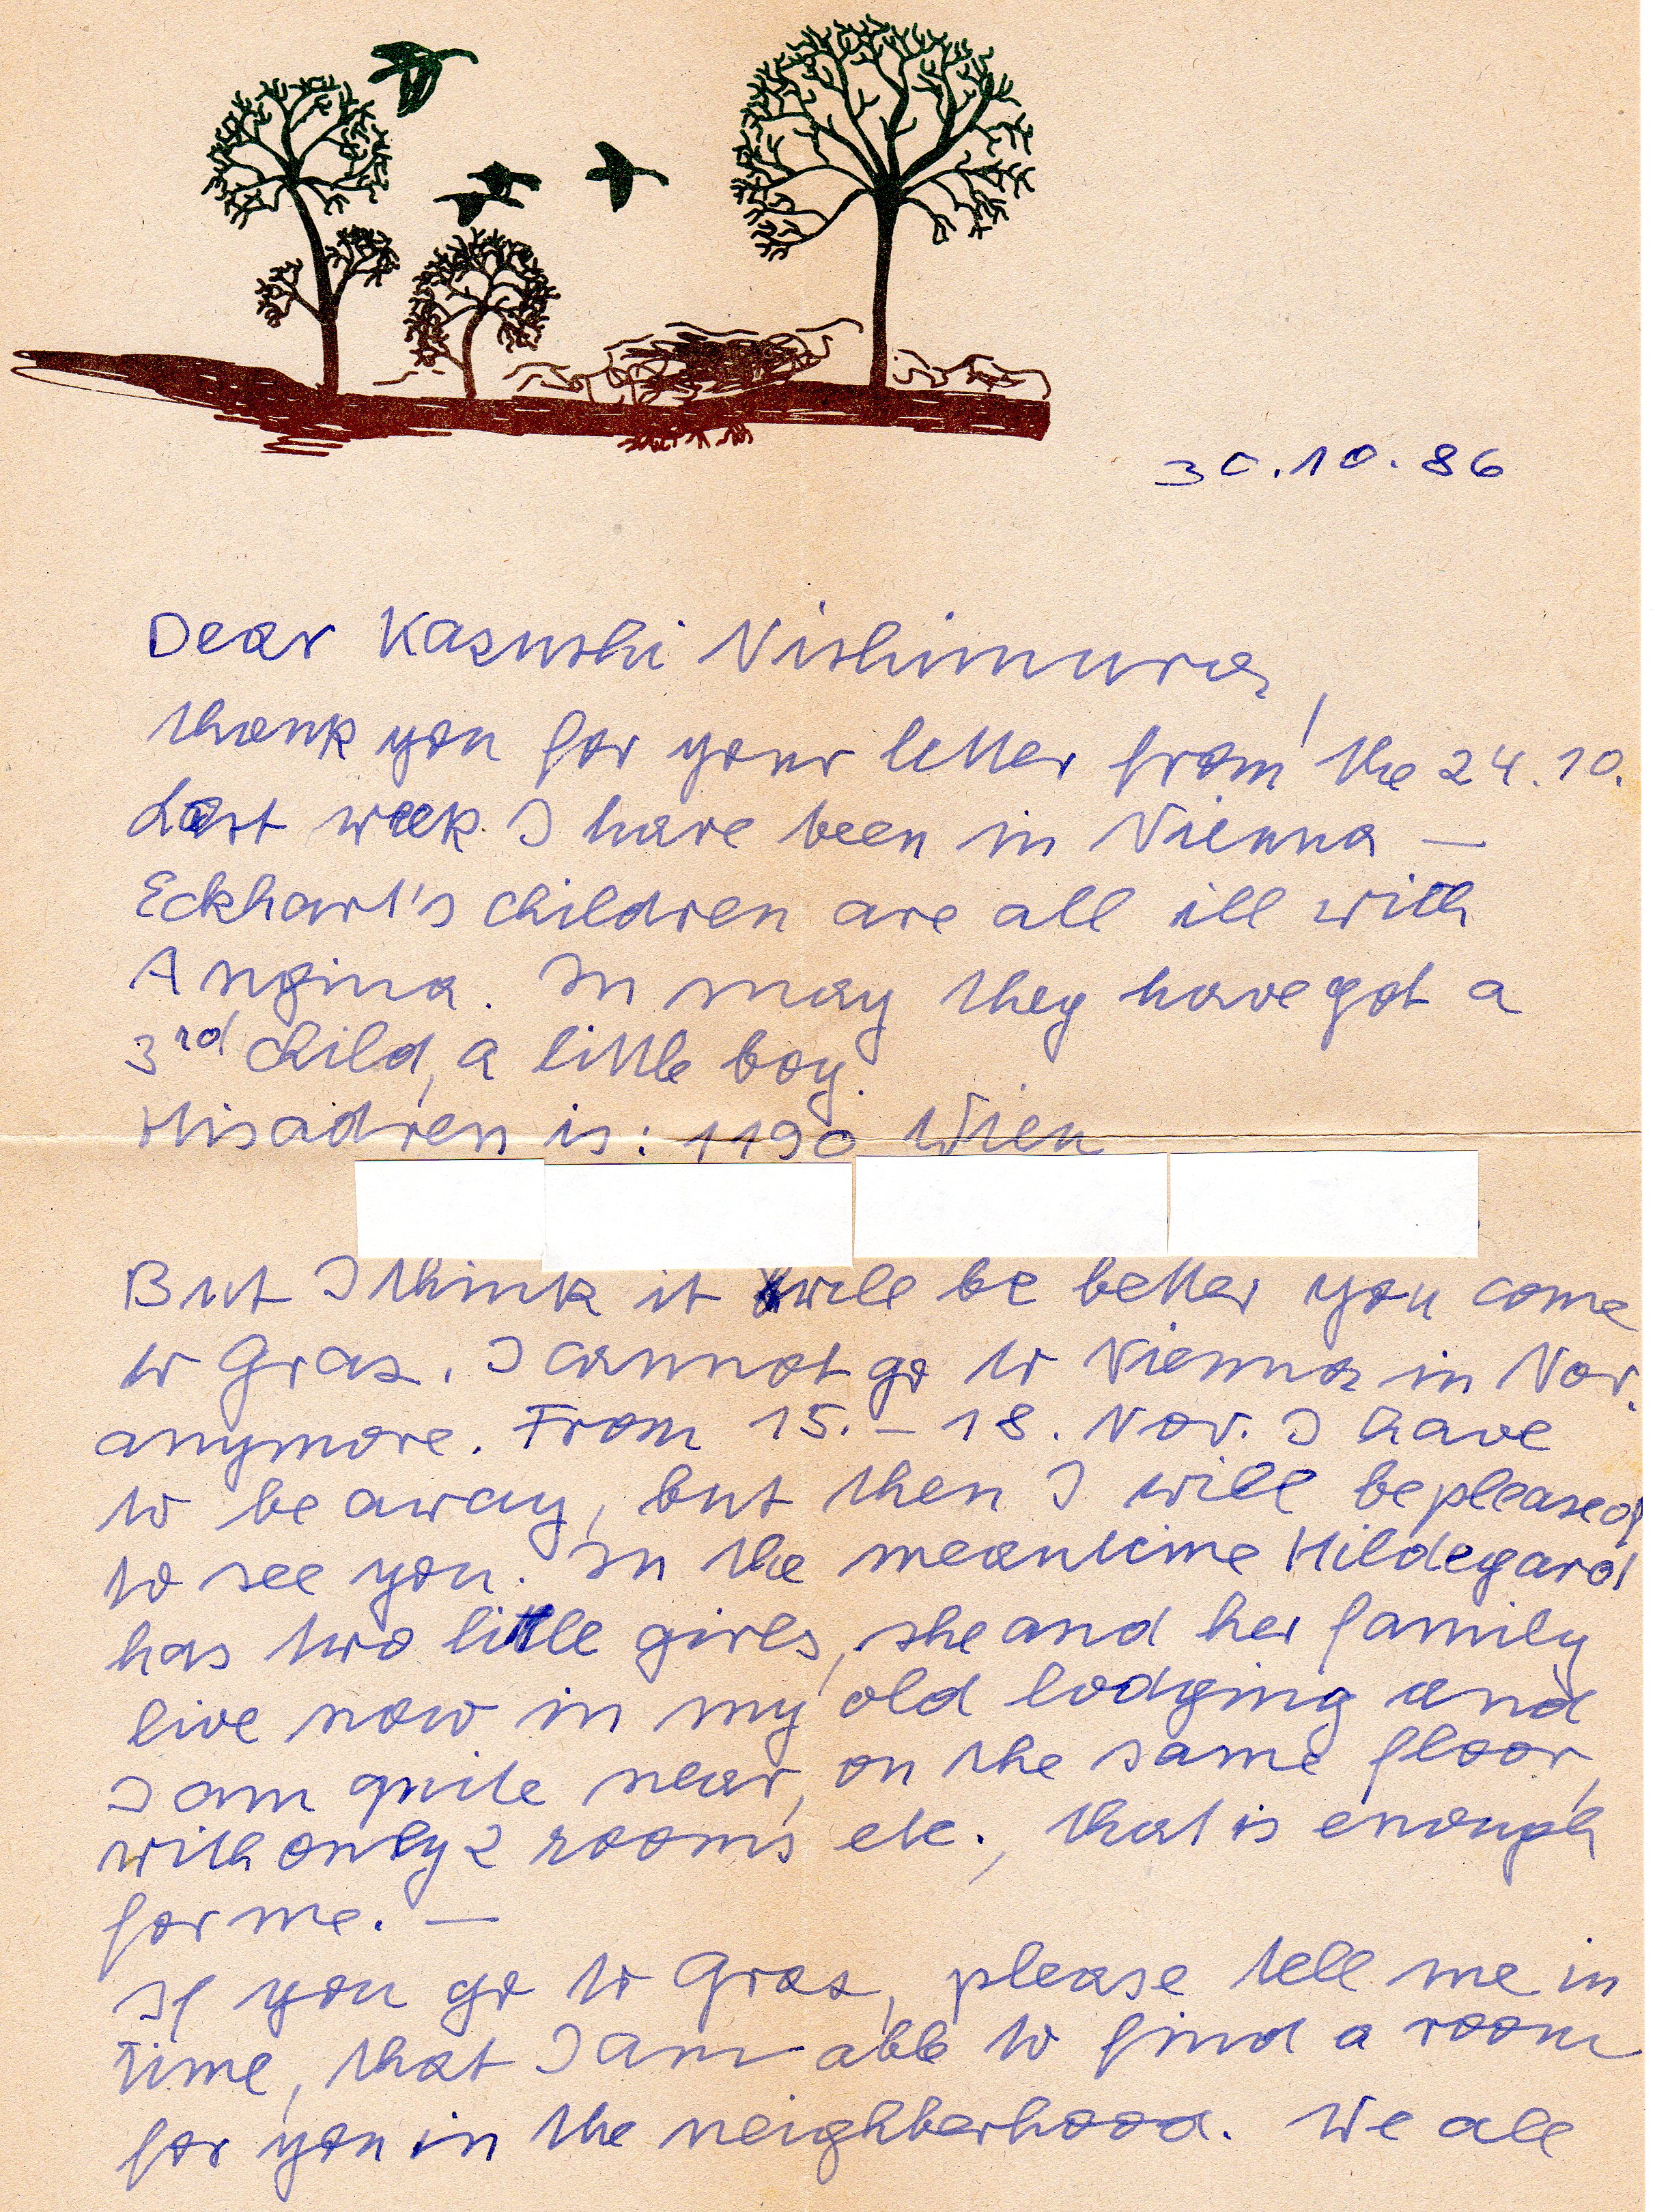 30.10.86
Dear Kazushi Nishimura,
thank you for your letter from the 24.10.
Last week I have been in Vienna —
Eckhart's children are all ill with
Angina. In may they have got a
3rd child, a little boy.
His adress is: 1190 Wien
But I think it will be better you come
to Graz. I cannot go to Vienna in Nov.
anymore. From 15. – 18. Nov. I have
to be away, but then I will be pleased
to see you. In the meantime Hildegard
has two little girls, she and her family
live now in my old lodging and
I am quite near, on the same floor,
with only 2 rooms etc., that is enough
for me. —
If you go to Graz, please tell me in
time, that I am able to find a room
for you in the neighberhood. We all